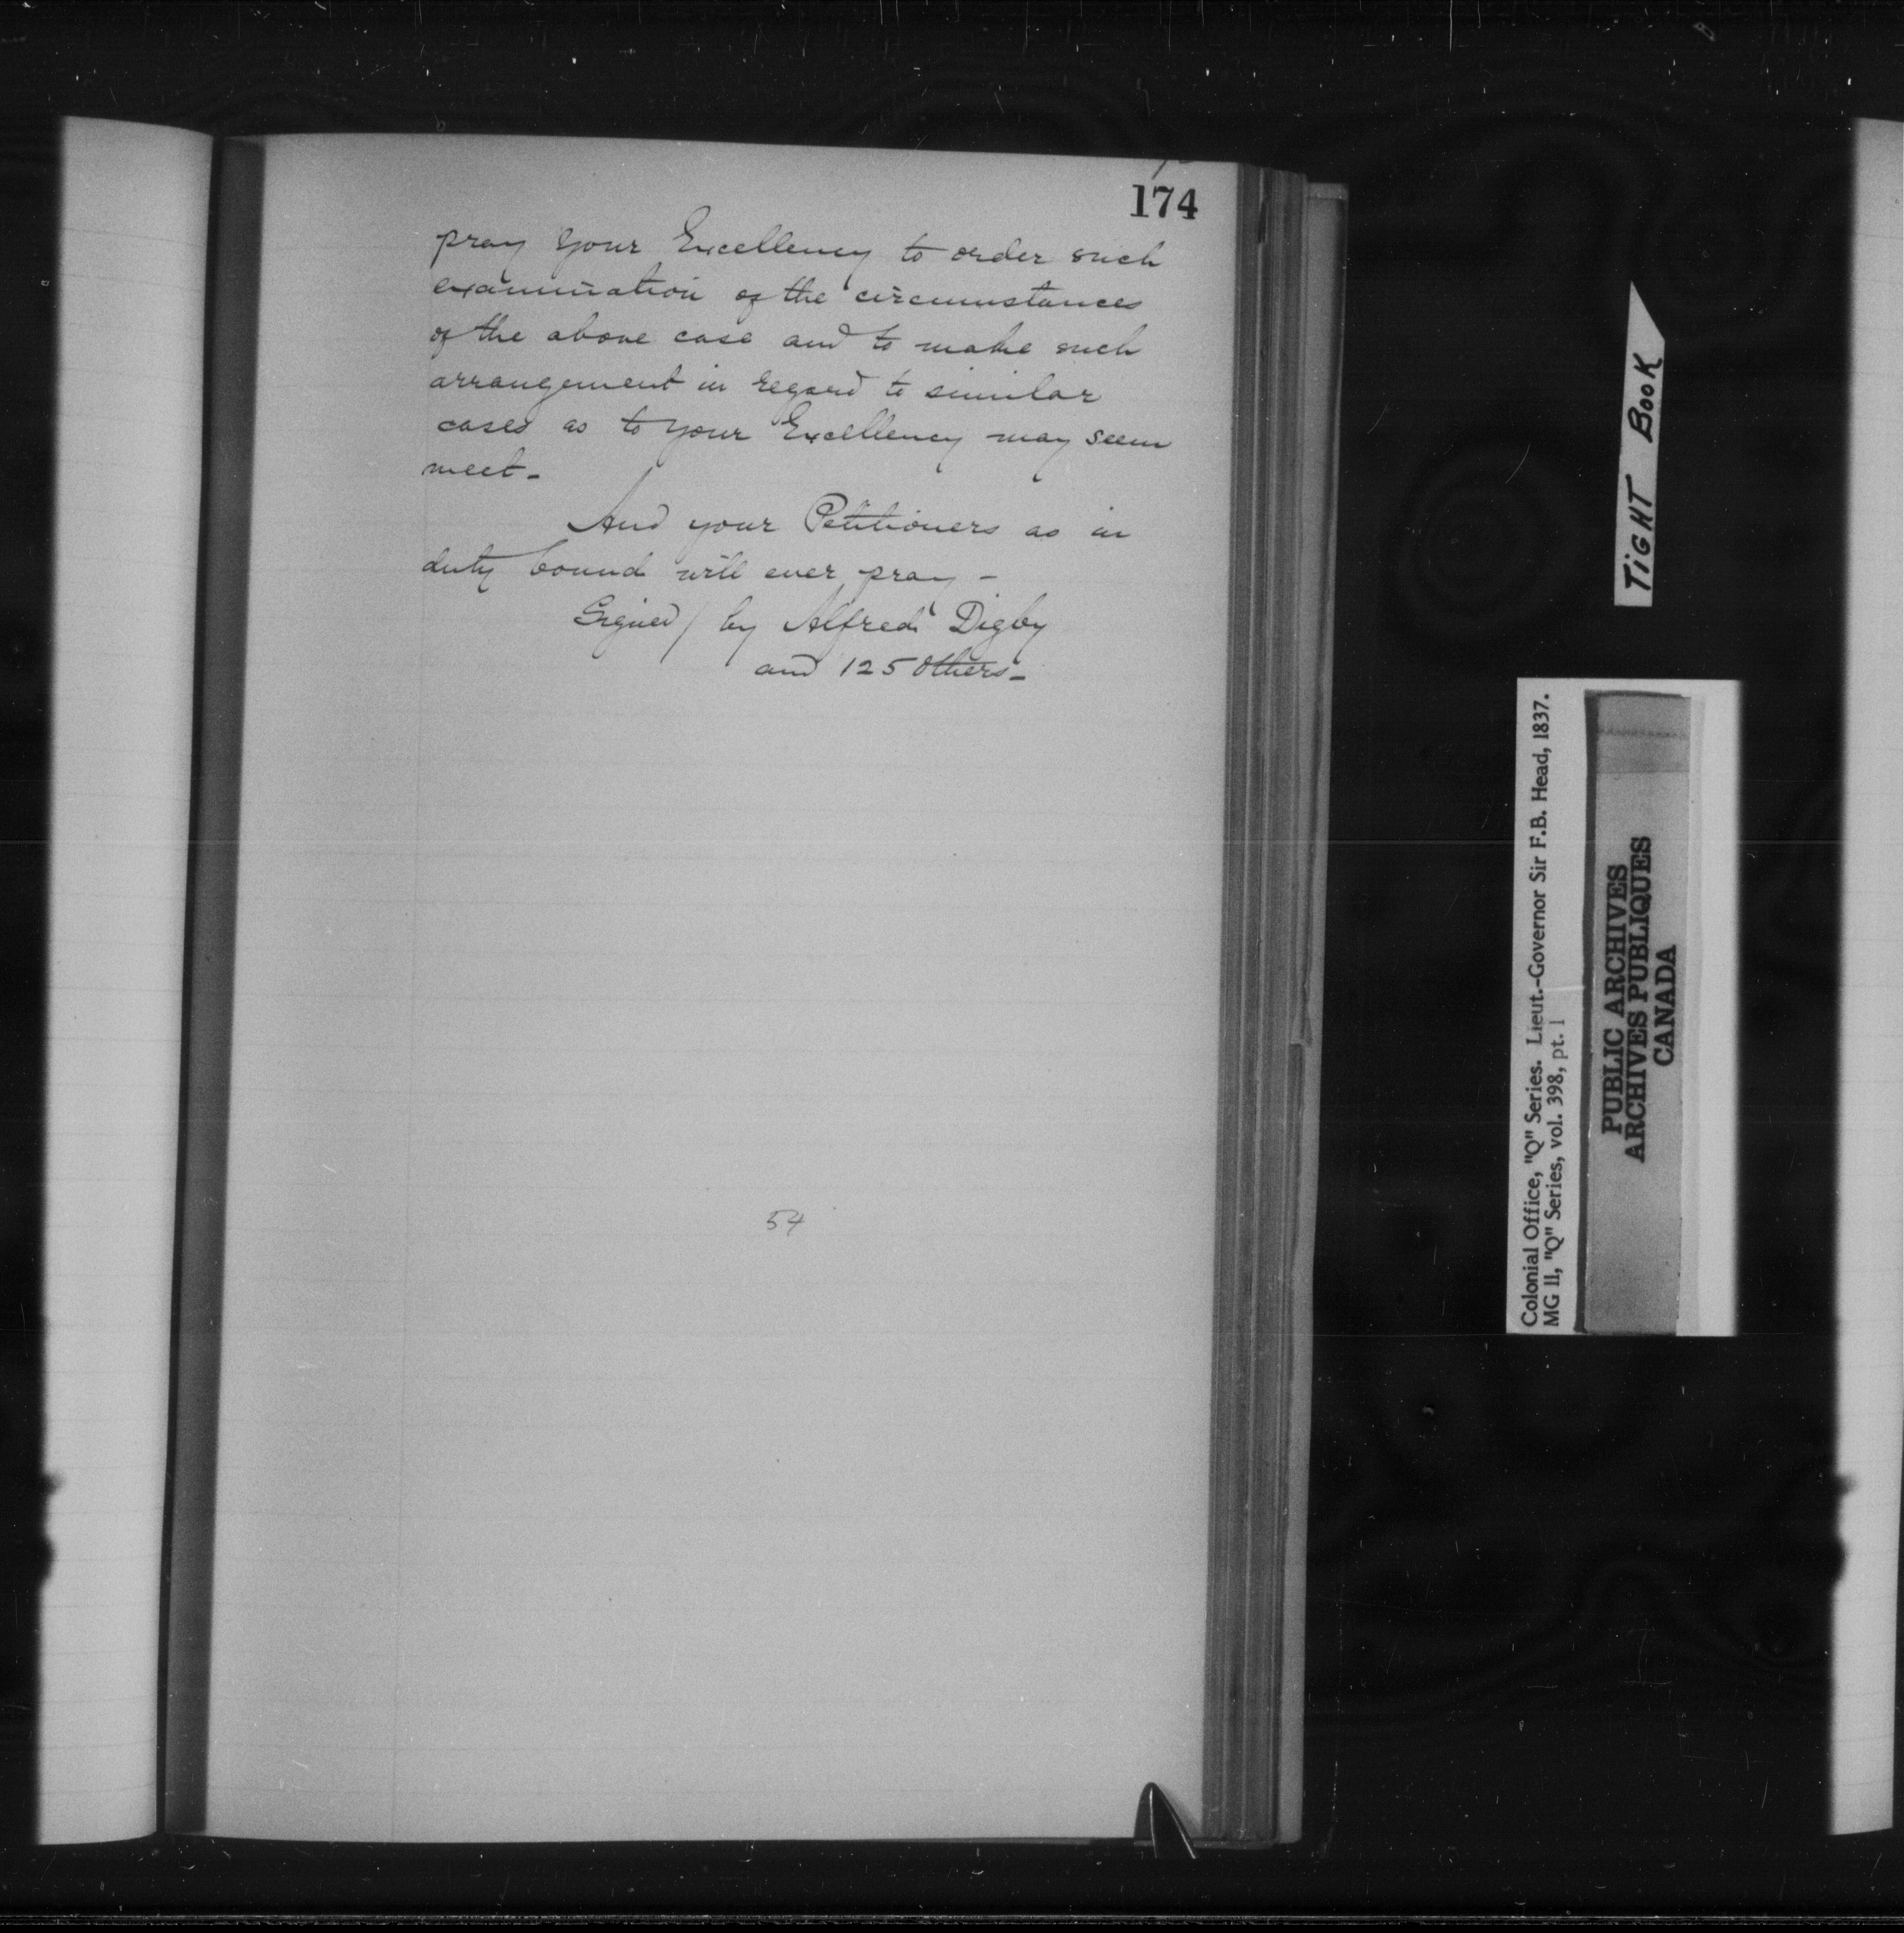 174
pray Your Excellency to order such
examination of the circumstances
of the above case and to make such
arrangement in regard to similar
cases as to Your Excellency may seem
meet-
And your Petitioners as in
duty bound will ever pray -
Signed / by Alfred Digby
and 125 Others-
54
TIGHT BOOK
Colonial Office, "Q" Series. Lieut.-Governor Sir F.B. Head, 1837.
MG 11, "Q" Series, vol. 398, pt. 1
PUBLIC ARCHIVES
ARCHIVES PUBLIQUES
CANADA